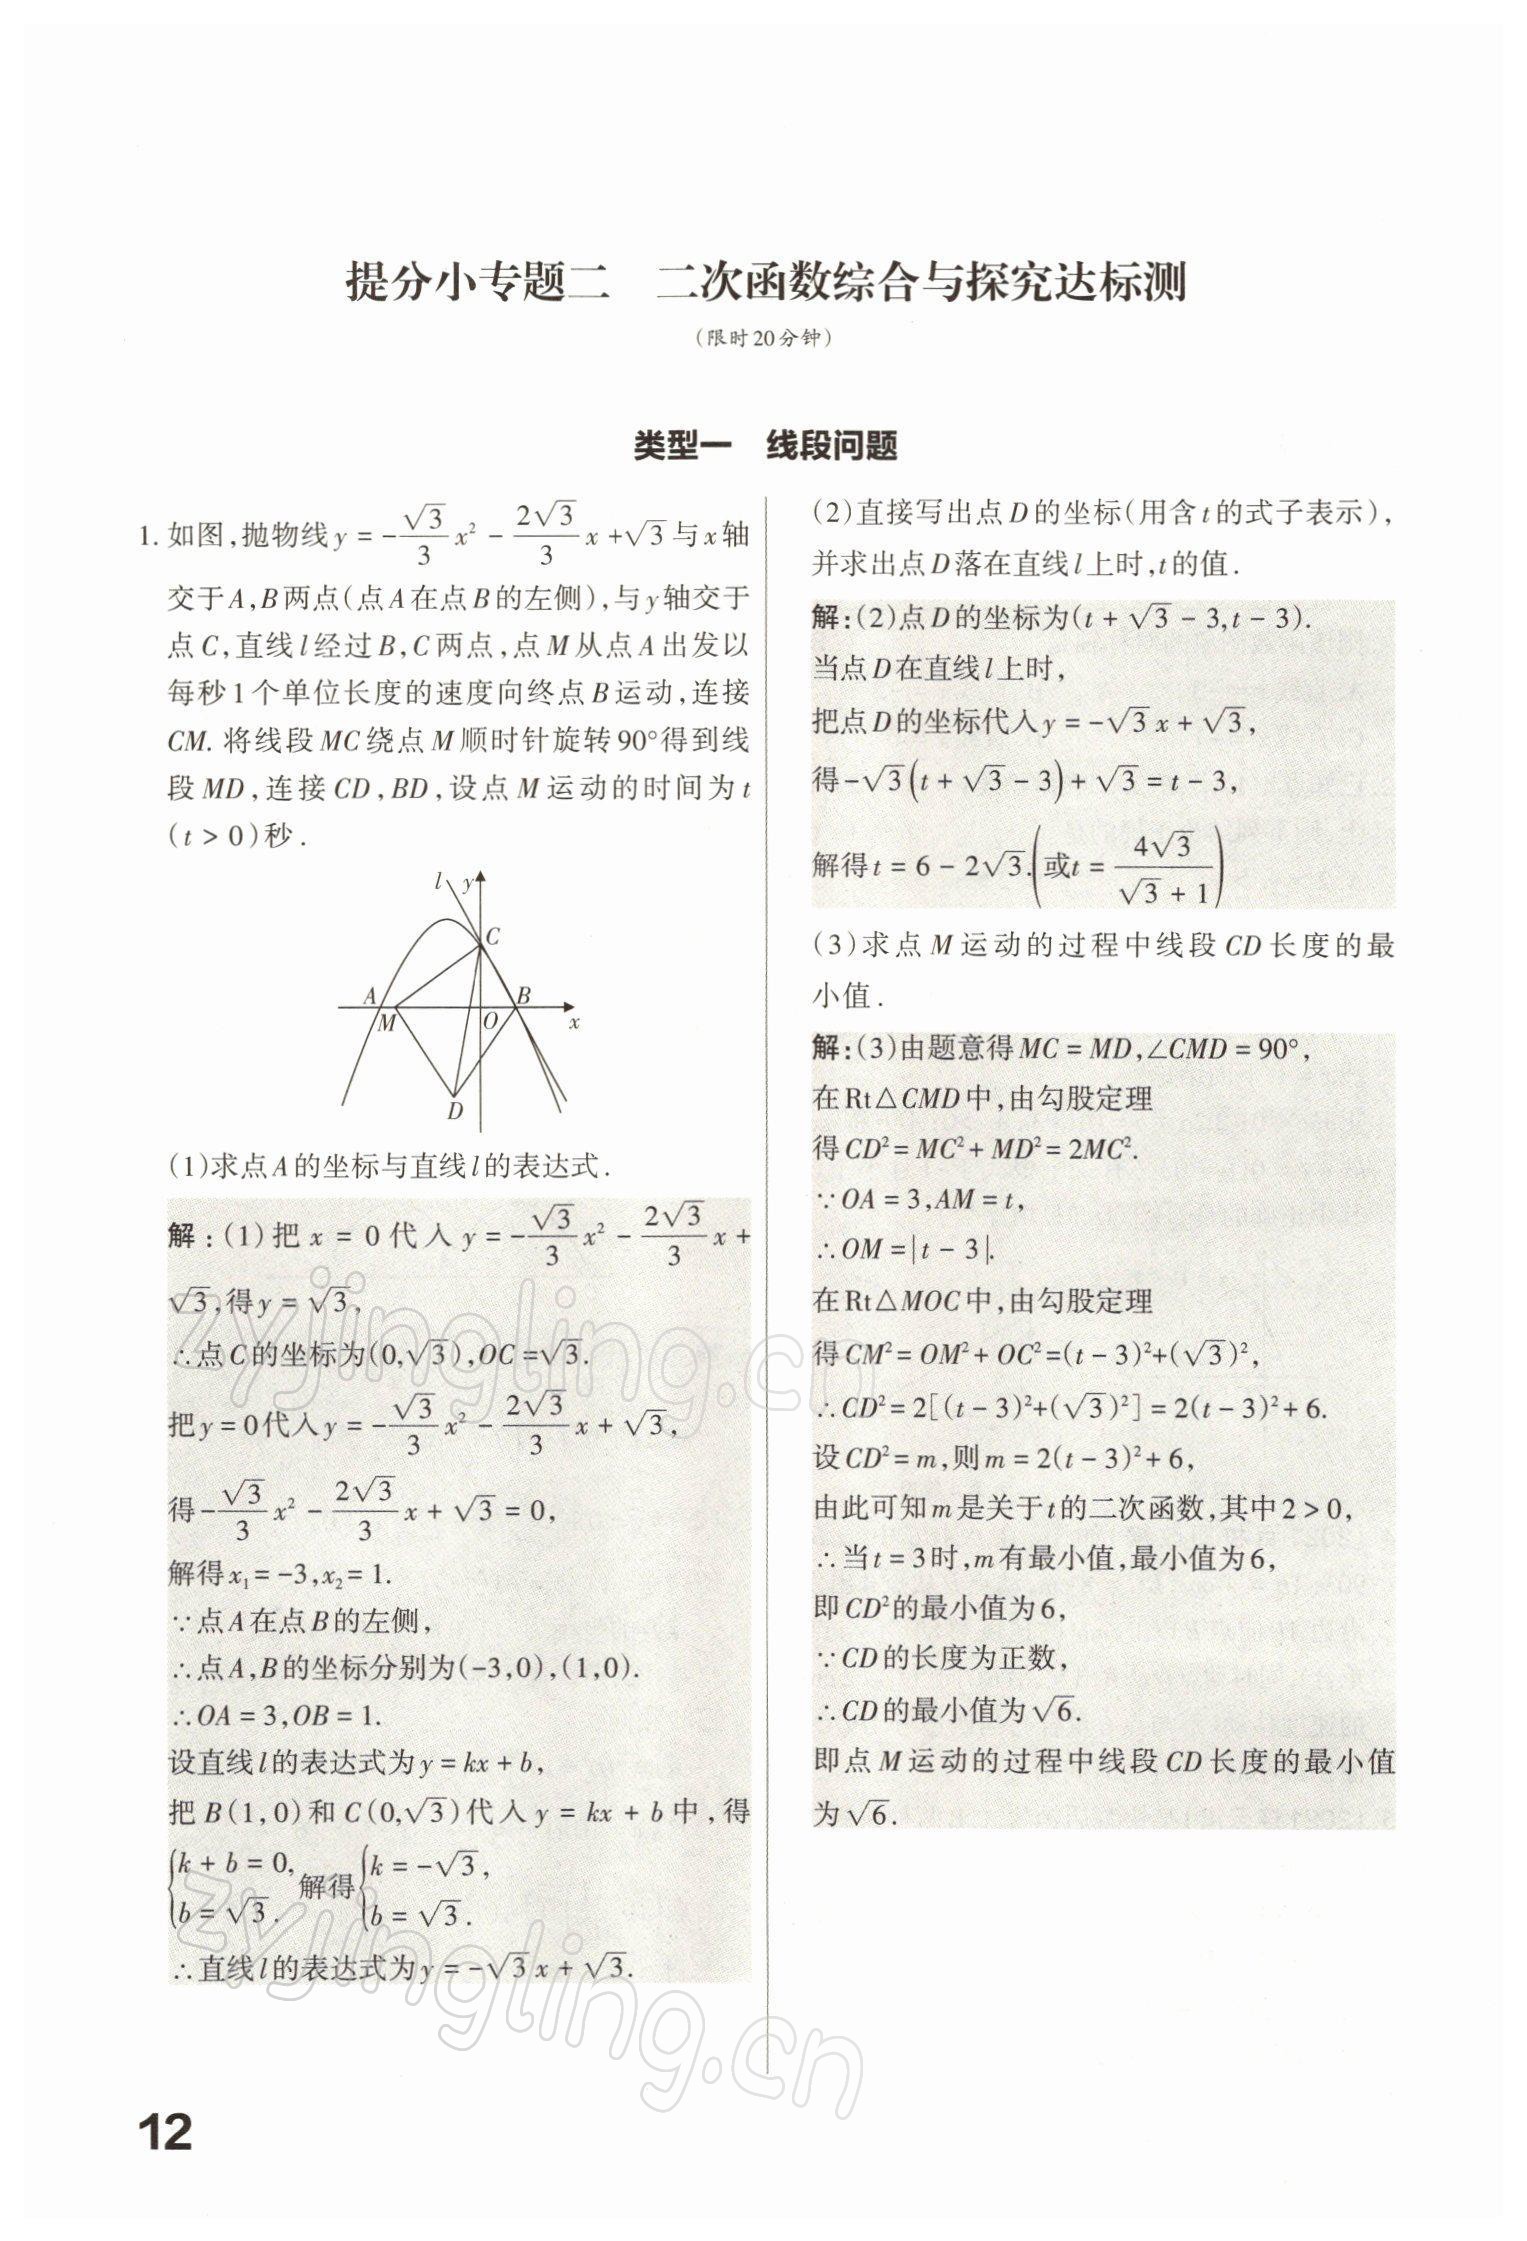 提分小专题二　二次函数综合与探究达标测
(限时20分钟)
类型一　线段问题
1. 如图,抛物线y = -√3/3 x² - 2√3/3 x + √3 与x轴
交于A,B两点(点A在点B的左侧),与y轴交于
点C,直线l经过B,C两点,点M从点A出发以
每秒1个单位长度的速度向终点B运动,连接
CM. 将线段MC绕点M顺时针旋转90°得到线
段MD,连接CD,BD,设点M运动的时间为t
(t > 0)秒.
l y
C
A B
M O x
D
(1)求点A的坐标与直线l的表达式.
解:(1)把x = 0代入y = -√3/3 x² - 2√3/3 x +
√3,得y = √3,
∴点C的坐标为(0,√3),OC = √3.
把y = 0代入y = -√3/3 x² - 2√3/3 x + √3,
得-√3/3 x² - 2√3/3 x + √3 = 0,
解得x₁ = -3,x₂ = 1.
∵点A在点B的左侧,
∴点A,B的坐标分别为(-3,0),(1,0).
∴OA = 3,OB = 1.
设直线l的表达式为y = kx + b,
把B(1,0)和C(0,√3)代入y = kx + b中,得
{k + b = 0, b = √3. 解得{k = -√3, b = √3.
∴直线l的表达式为y = -√3x + √3.
(2)直接写出点D的坐标(用含t的式子表示),
并求出点D落在直线l上时,t的值.
解:(2)点D的坐标为(t + √3 - 3,t - 3).
当点D在直线l上时,
把点D的坐标代入y = -√3x + √3,
得-√3(t + √3 - 3) + √3 = t - 3,
解得t = 6 - 2√3.(或t = 4√3/(√3 + 1))
(3)求点M运动的过程中线段CD长度的最
小值.
解:(3)由题意得MC = MD,∠CMD = 90°,
在Rt△CMD中,由勾股定理
得CD² = MC² + MD² = 2MC².
∵OA = 3,AM = t,
∴OM = |t - 3|.
在Rt△MOC中,由勾股定理
得CM² = OM² + OC² = (t - 3)² + (√3)²,
∴CD² = 2[(t - 3)² + (√3)²] = 2(t - 3)² + 6.
设CD² = m,则m = 2(t - 3)² + 6,
由此可知m是关于t的二次函数,其中2 > 0,
∴当t = 3时,m有最小值,最小值为6,
即CD²的最小值为6,
∵CD的长度为正数,
∴CD的最小值为√6.
即点M运动的过程中线段CD长度的最小值
为√6.
zyjingling.cn
zyjingling.cn
12